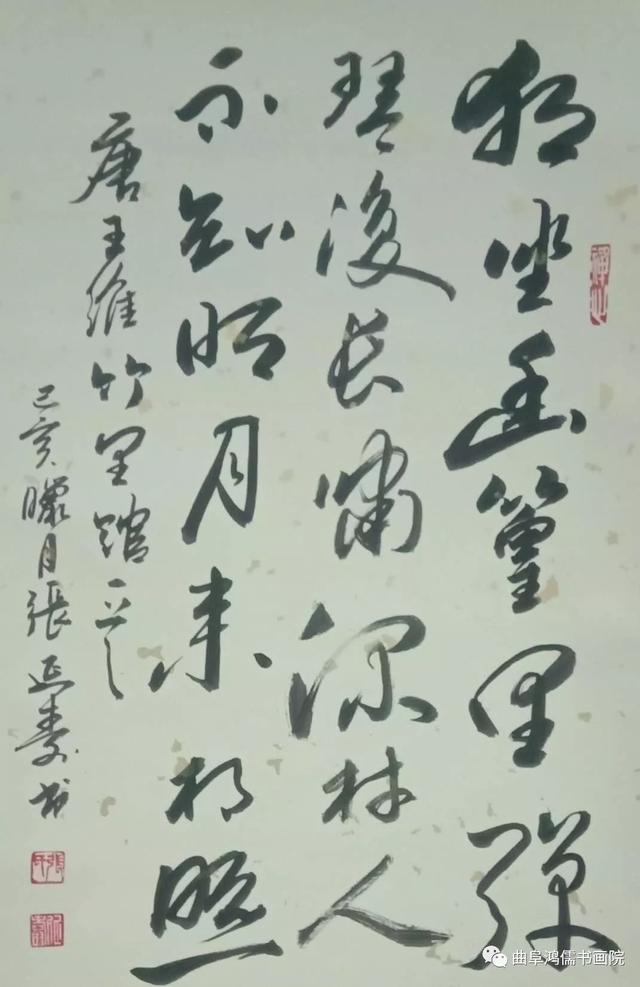 独坐幽篁里弹
琴復长啸深林人
不知明月来相照
唐王维竹里馆一首
己亥臘月張延寿书
曲阜鸿儒书画院